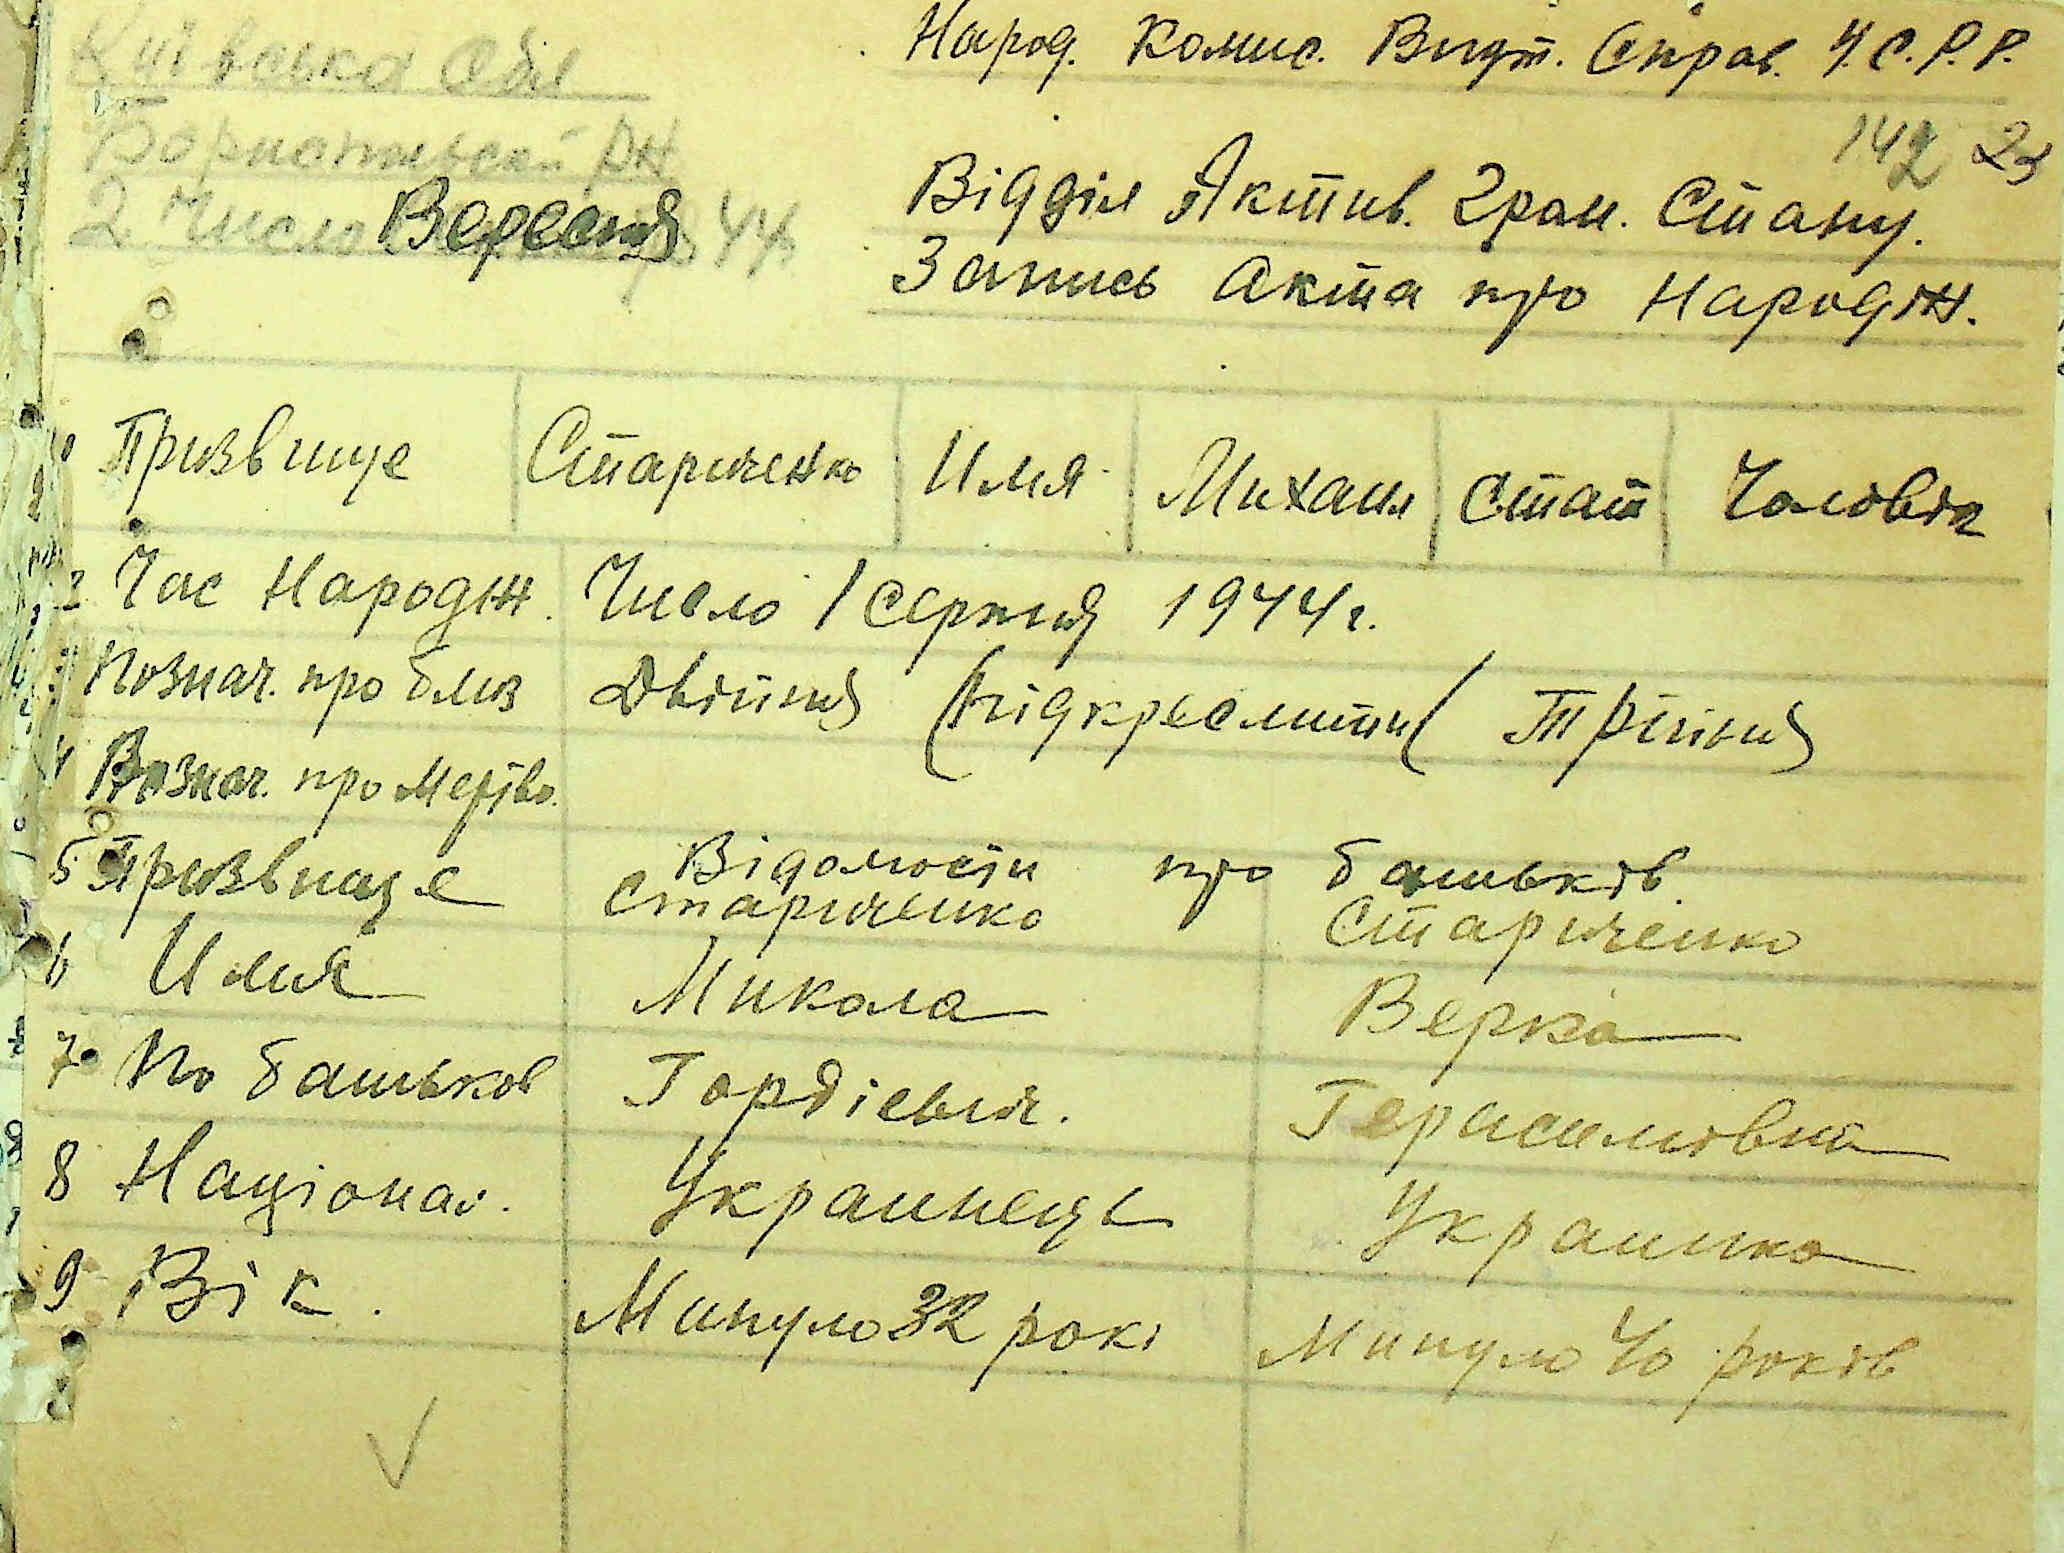 Київська Обл
Народ. Комис. Внут. Справ. У.С.Р.Р.
Бориспільский РН
142 23
2 Число Вересня 44
Відділ Актив. Гром. Стану.
Запись Акта про Народж.
Призвище Стариченко Имя Михаил Стат Чоловік
2 Час Народж. Число 1 Серпня 1944 г.
3 Познач. про близ Двійня (підкреслити( Трійня
4 Познач. про Мертво.
Відомости про батьків.
5 Призвище Стариченко Стариченко
6 Имя Микола Верка
7 По батьков Гордієвич. Герасимовна
8 Націонал. Украинець Украинка
9 Вік. Минуло 32 рокі Минуло 40 років